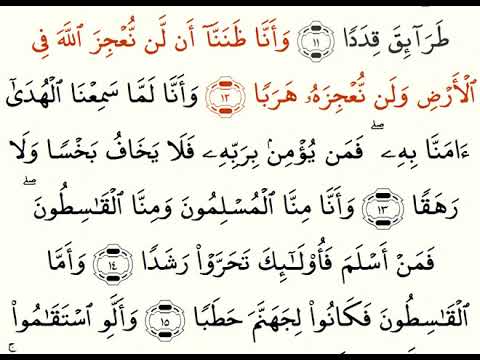 طَرَآئِقَ قِدَدًا ١١ وَأَنَّا ظَنَنَّآ أَن لَّن نُّعْجِزَ ٱللَّهَ فِى
ٱلْأَرْضِ وَلَن نُّعْجِزَهُۥ هَرَبًا ١٢ وَأَنَّا لَمَّا سَمِعْنَا ٱلْهُدَىٰٓ
ءَامَنَّا بِهِۦ ۖ فَمَن يُؤْمِنۢ بِرَبِّهِۦ فَلَا يَخَافُ بَخْسًا وَلَا
رَهَقًا ١٣ وَأَنَّا مِنَّا ٱلْمُسْلِمُونَ وَمِنَّا ٱلْقَـٰسِطُونَ ۖ
فَمَنْ أَسْلَمَ فَأُو۟لَـٰٓئِكَ تَحَرَّوْا۟ رَشَدًا ١٤ وَأَمَّا
ٱلْقَـٰسِطُونَ فَكَانُوا۟ لِجَهَنَّمَ حَطَبًا ١٥ وَأَلَّوِ ٱسْتَقَـٰمُوا۟